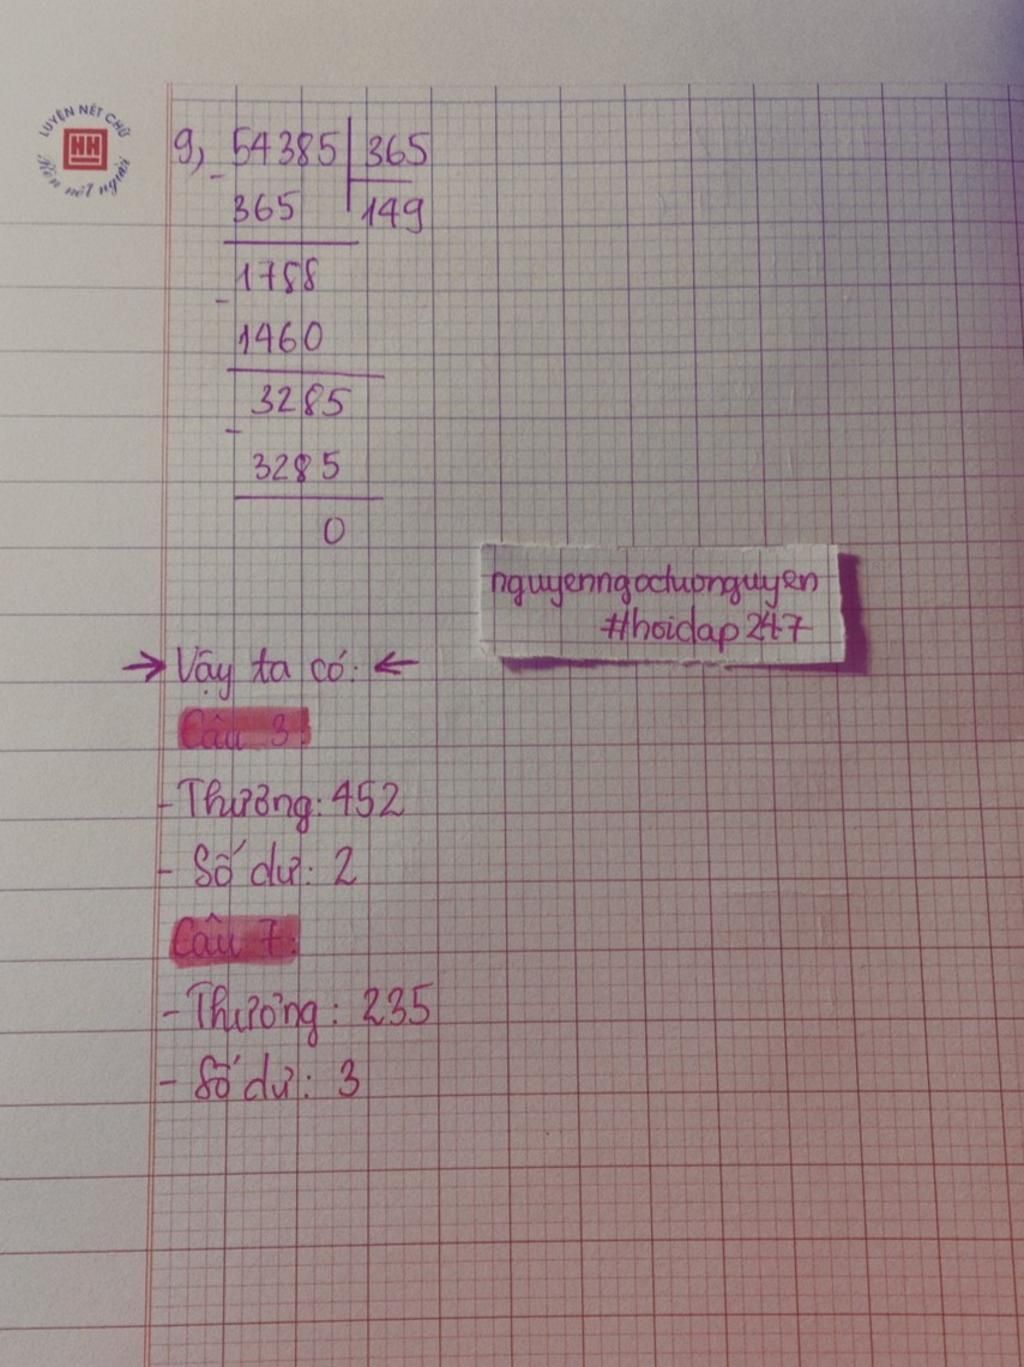 LUYỆN NÉT CHỮ
HH
Rèn nết người
9, 54385 365
- 365 149
1788
- 1460
3285
- 3285
0
nguyenngoctuonguyen
#hoidap247
→ Vậy ta có: ←
Câu 3:
- Thương: 452
- Số dư: 2
Câu 7:
- Thương: 235
- Số dư: 3